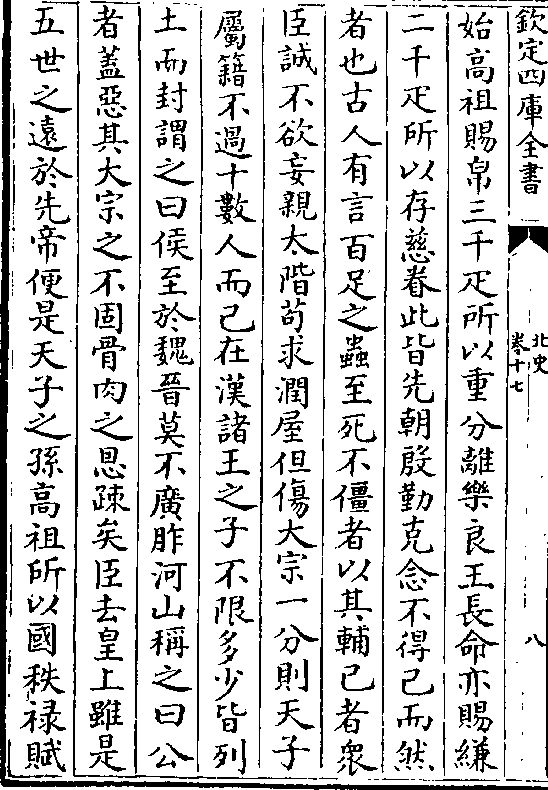 欽定四庫全書
北史
卷十七
八
始高祖賜帛三千疋所以重分離樂良王長命亦賜縑
二千疋所以存慈眷此皆先朝殷勤克念不得已而然
者也古人有言百足之蟲至死不僵者以其輔己者衆
臣誠不欲妄親太階苟求潤屋但傷大宗一分則天子
屬籍不過十數人而已在漢諸王之子不限多少皆列
土而封謂之曰侯至於魏晉莫不廣胙河山稱之曰公
者蓋惡其大宗之不固骨肉之恩疎矣臣去皇上雖是
五世之遠於先帝便是天子之孫高祖所以國秩禄賦